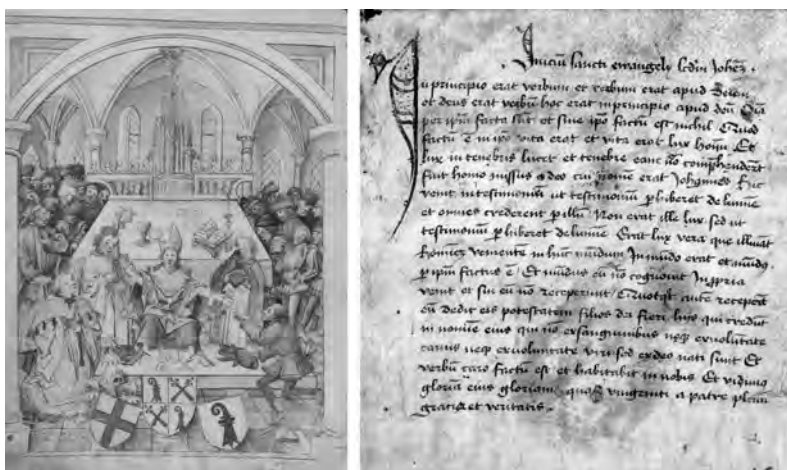 Iniciū sancti ewangely scdm Johēn
In principio erat verbum et verbum erat apud Deum
et deus erat verbū hoc erat in principio apud deū Oīa
per ipm̄ facta sūt et sine ipō factū est nichil Quod
factū ē in ipō vita erat et vita erat lux hoīm Et
lux in tenebris lucet et tenebre eam nō comp̄henderūt
fuit homo missus a deo cui nomē erat Johannes Hic
venit in testimoniū ut testimoniū p̱hiberet de lumīe
et omnes crederent p̱ illū Non erat ille lux sed ut
testimoniū p̱hiberet de lumīe Erat lux vera que illuīat
homīez venientē in hūc mūdum In mūdo erat et mūdus
p̱ ipm̄ factus ē Et mūdus eū nō cognouit In p̱pria
venit et sui eū nō receperunt Quotqt autē receperūt
eū dedit eis potestatem filios dei fieri hijs qui credūt
in nomīe eius qui nō ex sanguinibus neqz ex voluntate
carnis neqz ex voluntate viri sed ex deo nati sunt Et
verbū caro factū est et habitabit in nobis Et vidimus
gloriā eius gloriam quasi vnigeniti a patre plenū
gracia et veritatis